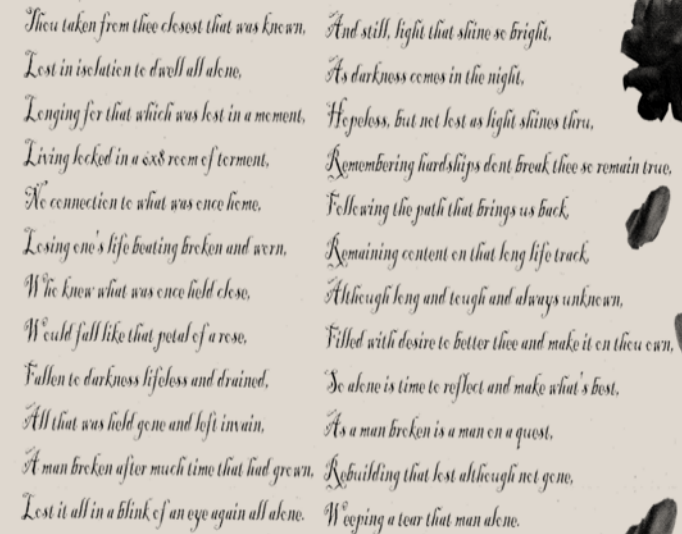 Thou taken from thee closest that was known,
Lost in isolation to dwell all alone,
Longing for that which was lost in a moment,
Living locked in a 6x8 room of torment,
No connection to what was once home,
Losing one's life beating broken and worn,
Who knew what was once held close,
Would fall like that petal of a rose,
Fallen to darkness lifeless and drained,
All that was held gone and left invain,
A man broken after much time that had grown,
Lost it all in a blink of an eye again all alone.
And still, light that shine so bright,
As darkness comes in the night,
Hopeless, but not lost as light shines thru,
Remembering hardships dont break thee so remain true,
Following the path that brings us back,
Remaining content on that long life track,
Although long and tough and always unknown,
Filled with desire to better thee and make it on thou own,
So alone is time to reflect and make what's best,
As a man broken is a man on a quest,
Rebuilding that lost although not gone,
Weeping a tear that man alone.